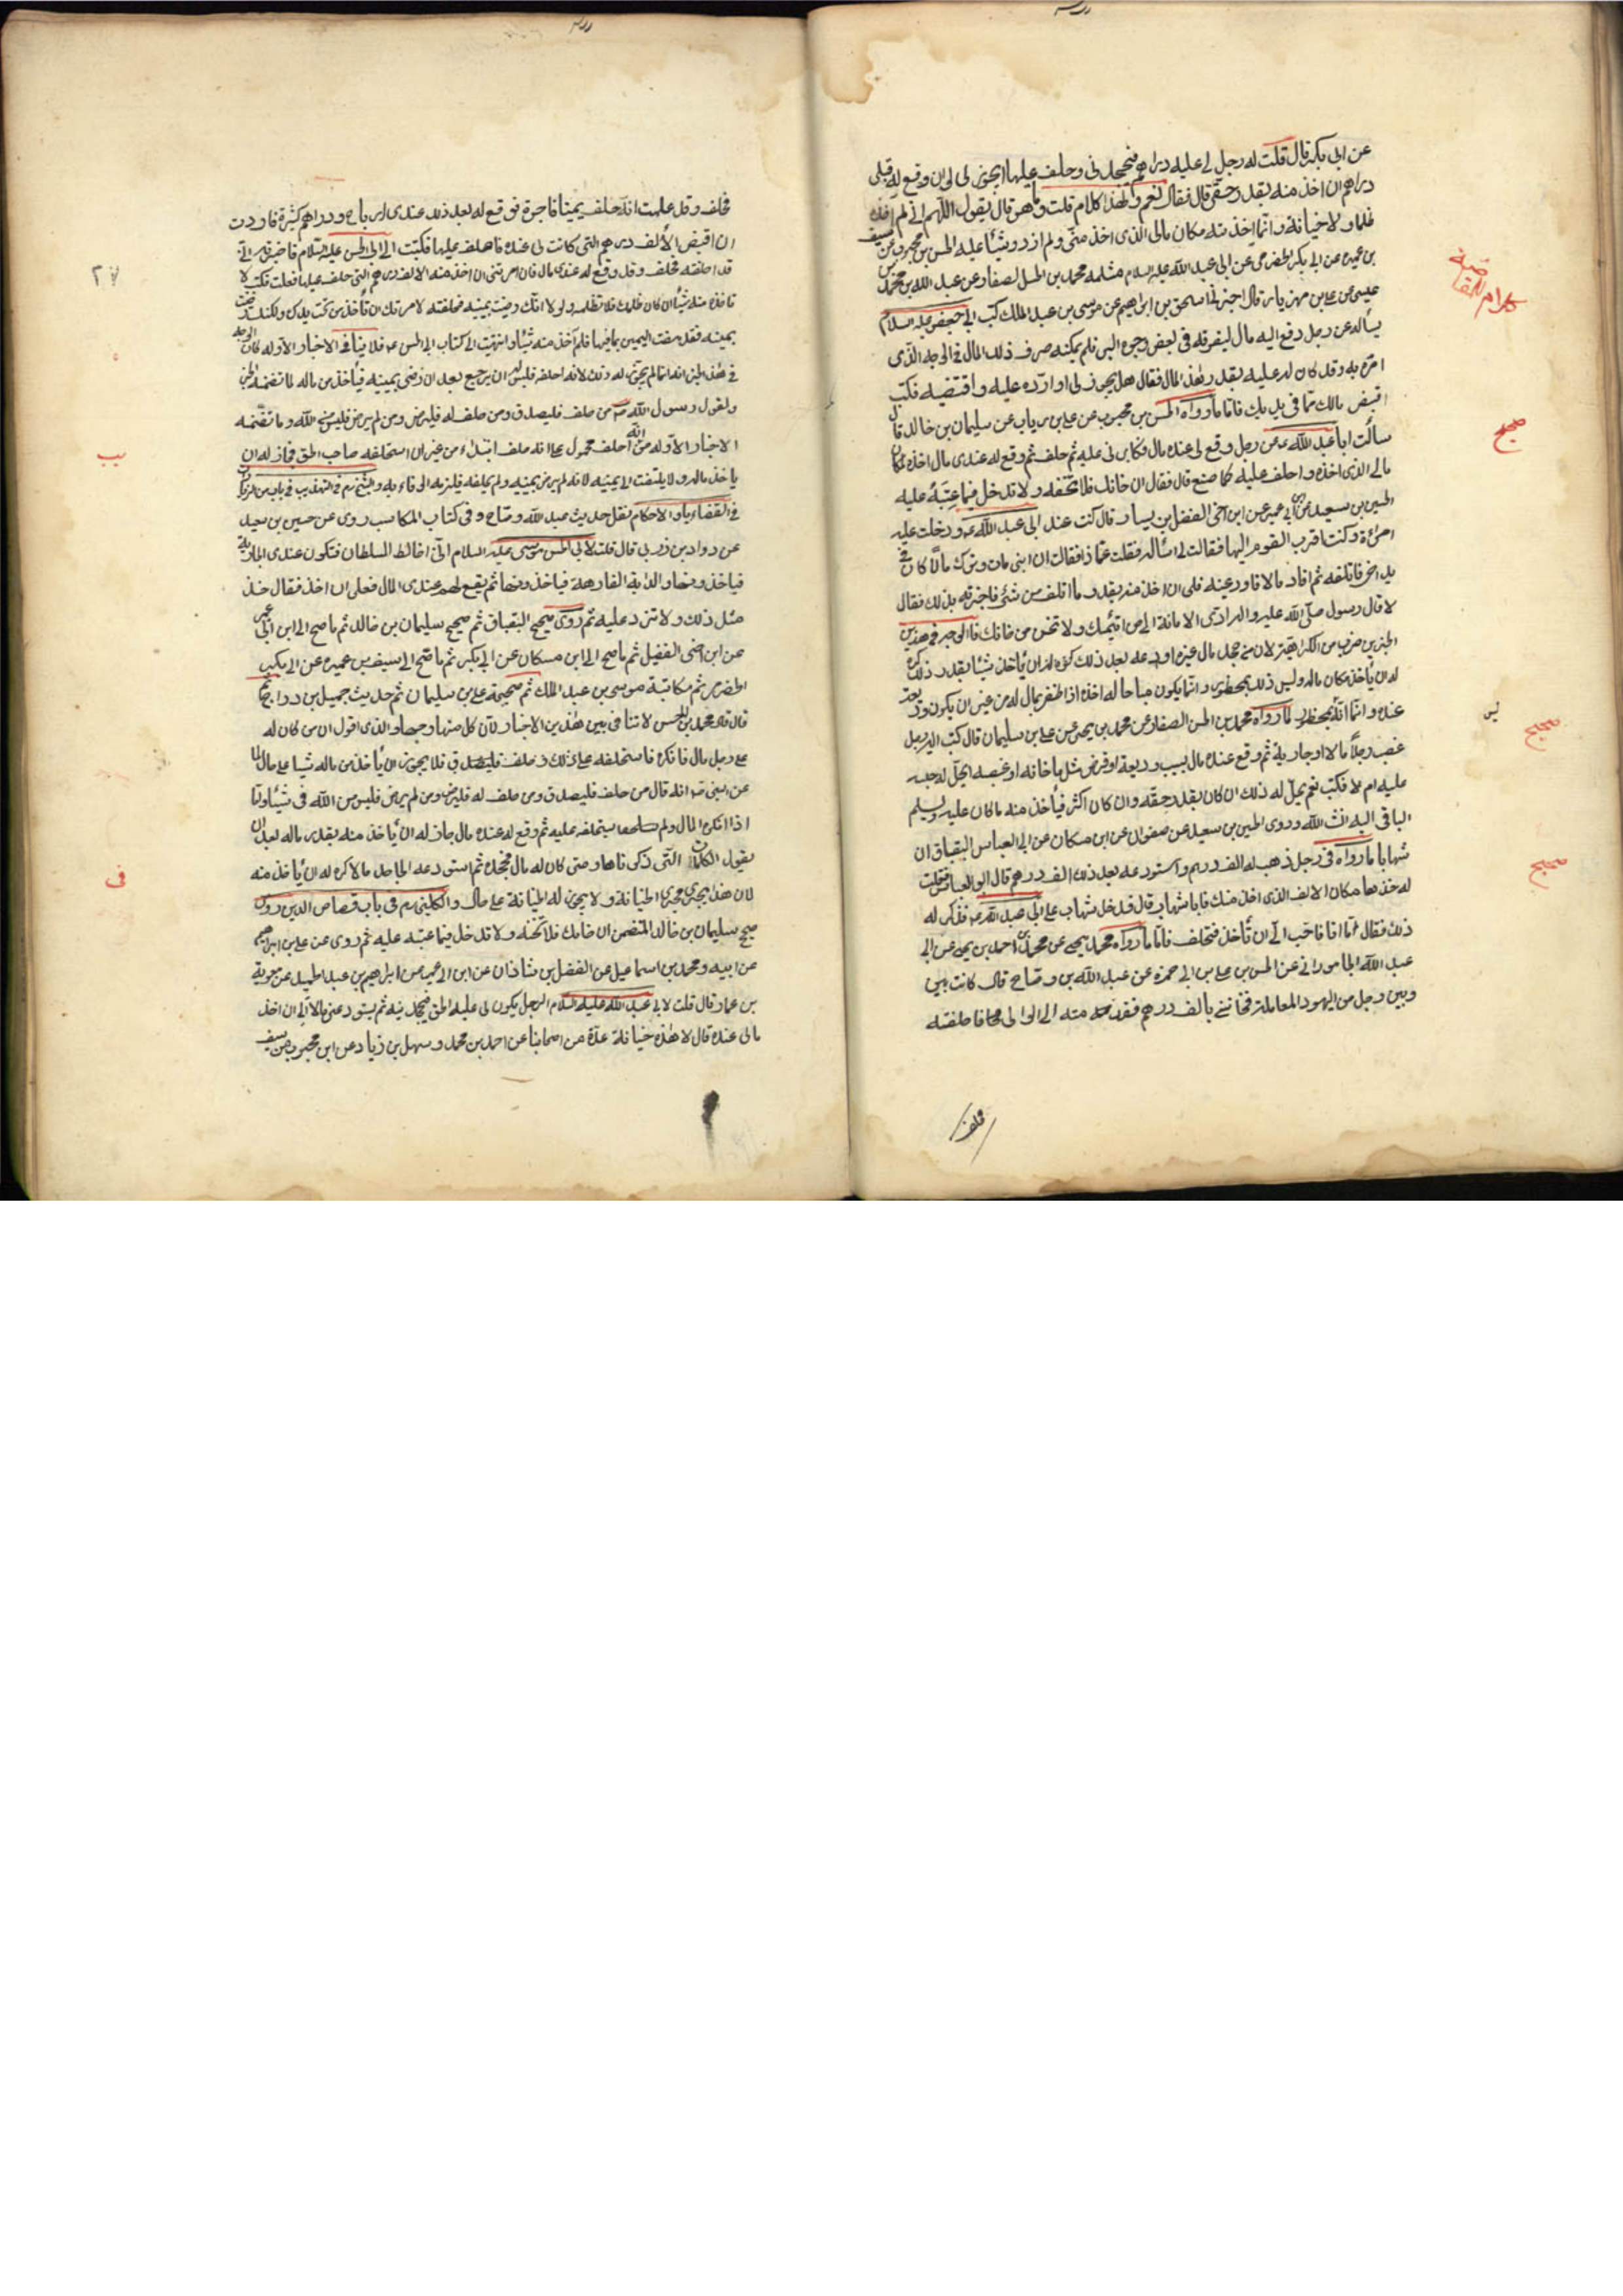 عن ابى بكر قال قلت له رجل لى عليه دراهم فجحدنى وحلف عليها ايجوز لى ان وقع له قبلى
دراهم ان اخذ منه بقدر حقى قال فقال نعم ولهذا كلام قلت وما هو قال يقول اللهم انى لم اخذه
ظلما ولا خيانة وانما اخذته مكان مالى الذى اخذ منى ولم ازدد شيئا عليه الحسن بن محبوب عن سيف
بن عميرة عن ابى بكر الحضرمى عن ابى عبد الله عليه السلام مثله محمد بن الحسن الصفار عن عبد الله بن محمد بن
عيسى عن على بن مهزيار قال اخبرنى اسحق بن ابراهيم عن موسى بن عبد الملك كتب الى ابى جعفر عليه السلام
يسأله عن رجل دفع اليه مال ليفرقه فى بعض وجوه البر فلم يمكنه صرف ذلك المال فى الوجه الذى
امره به وقد كان له عليه بقدر هذا المال فقال هل يجوز لى او ارده عليه واقتضيه فكتب
اقبض مالك مما فى يديك فاما ما رواه الحسن بن محبوب عن على بن رياب عن سليمان بن خالد قال
سألت ابا عبد الله ع عن رجل وقع لى عنده مال فكابرنى عليه ثم حلف ثم وقع له عندى مال اخذه مكان
مالى الذى اخذه واحلف عليه كما صنع قال فقال ان خانك فلا تخنه ولا تدخل فيما عتبه عليه
الحسين بن سعيد عن ابن ابى عمير عن ابن اخى الفضل بن يسار قال كنت عند ابى عبد الله ع ودخلت عليه
امرأة وكنت اقرب القوم اليها فقالت لى اسأله فقلت عما ذا فقالت ان ابنى مات وترك مالا كان فى
يد اخى فاتلفه ثم افاد مالا فاودعنيه فلى ان اخذ منه بقدر ما اتلف من شئ فاخبرته بذلك فقال
لا قال رسول صلى الله عليه واله ادّ الامانة الى من ائتمنك ولا تخن من خانك فالوجه فى هذين
الخبرين ضرب من الكراهية لان من جحد مال غيره اودعه بعد ذلك كره له ان يأخذ شيئا بقدر ذلك
له ان يأخذ مكان ماله وليس ذلك بمحظور وانما يكون مباحا له اخذه اذا ظفر بمال له من غير ان يكون
عنده وانما انه بمحظور لما رواه محمد بن الحسن الصفار عن محمد بن يحيى عن على بن سليمان قال كتب اليه رجل
غصب رجلا مالا او جارية ثم وقع عنده مال بسبب وديعة او قرض مثل ما خانه او غصبه ايحل له حبسه
عليه ام لا فكتب نعم يحل له ذلك ان كان بقدر حقه وان كان اكثر فيأخذ منه ما كان عليه ويسلم
الباقى اليه انش الله وروى الحسين بن سعيد عن صفوان عن ابن مسكان عن ابى العباس البقباق ان
شهابا ماراه فى رجل ذهب له الف درهم واستودعه بعد ذلك الف درهم قال ابو العباس فقلت
له خذها مكان الالف الذى اخذ منك فابا شهاب قال فدخل شهاب على ابى عبد الله ع فذكر له
ذلك فقال اما انا فاحب الى ان تأخذ وتحلف فاما ما رواه محمد بن يحيى عن محمد بن احمد بن يحيى عن ابى
عبد الله الجامورانى عن الحسن بن على بن ابى حمزة عن عبد الله بن وضاح قال كانت بينى
وبين رجل من اليهود المعاملة فخاننى بالف درهم فقدمته الى الوالى فاحلفته
فحلف
كلام للمقاصة
صحيح
صحيح
صحيح
فحلف وقد علمت انه حلف يمينا فاجرة فوقع له بعد ذلك عندى ارباح ودراهم كثيرة فاردت
ان اقبض الالف درهم التى كانت لى عنده واحلف عليها فكتبت الى ابى الحسن عليه السلام فاخبرته انى
قد احلفته فحلف وقد وقع له عندى مال فان امرتنى ان اخذ منه الالف درهم التى حلف عليها فعلت فكتب لا
تأخذ منه شيئا ان كان ظلمك فلا تظلمه ولولا انك رضيت بيمينه فحلفته لامرتك ان تأخذ من تحت يدك ولكنك رضيت
بيمينه فقد مضت اليمين بما فيها فلم آخذ منه شيئا وانتهيت الى كتاب ابى الحسن ع فلا ينافى الاخبار الاولة لان الوجه
فى هذا الخبر انه انما لم يجز له ذلك لانه احلفه فليس له ان يرجع بعد ان رضى بيمينه فيأخذ من ماله لما تضمنه الخبر
ولقول رسول الله ص من حلف فليصدق ومن حلف له فليرض ومن لم يرض فليس من الله وما تضمنه
الاخبار الاولة من انه احلف محمول على انه حلف ابتداء من غير ان استحلفه صاحب الحق فجاز له ان
يأخذ ماله ولا يلتفت الى يمينه لانه لم يرض بيمينه ولم يحلفه فيلزمه الوفاء به والشيخ ره فى التهذيب فى باب من الزيادات
فى القضايا والاحكام نقل حديث عبد الله وضاح وفى كتاب المكاسب روى عن حسين بن سعيد
عن داود بن زربى قال قلت لابى الحسن موسى عليه السلام انى اخالط السلطان فتكون عندى الجارية
فيأخذونها والدابة الفارهة فيأخذونها ثم يقع لهم عندى المال فعلى ان اخذ فقال خذ
مثل ذلك ولا تزد عليه ثم روى صحيح البقباق ثم صحيح سليمان بن خالد ثم ما صح الى ابن ابى عمير
عن ابن اخى الفضيل ثم ما صح الى ابن مسكان عن ابى بكر ثم ما صح الى سيف بن عميرة عن ابى بكر
الحضرمى ثم مكاتبة موسى بن عبد الملك ثم صحيحة على بن سليمان ثم حديث جميل بن دراج ثم
قال قال محمد بن الحسن لا تنافى بين هذين الاخبار لان كل منها وجها والذى اقول ان من كان له
على رجل مال فانكره فاستحلفه على ذلك وحلف فليصدق فلا يجوز ان يأخذ من ماله شيئا على حال لما
عن النبى ص انه قال من حلف فليصدق ومن حلف له فليرض ومن لم يرض فليس من الله فى شئ واما
اذا انكره المال ولم يستحلفه عليه ثم وقع له عنده مال جاز له ان يأخذ منه بقدر ماله بعد ان
يقول الكلمات التى ذكرناها ومتى كان له مال فجحده ثم استودعه الجاحد مالا كره له ان يأخذ منه
لان هذا يجرى مجرى الخيانة ولا يجوز له الخيانة على حال والكلينى ره فى باب قصاص الدين روى
صحيح سليمان بن خالد المتضمن ان خانك فلا تخنه ولا تدخل فيما عتبه عليه ثم روى عن على بن ابراهيم
عن ابيه ومحمد بن اسماعيل عن الفضل بن شاذان عن ابن ابى عمير عن ابراهيم بن عبد الحميد عن معوية
بن عمار قال قلت لابى عبد الله عليه السلام الرجل يكون لى عليه الحق فيجحدنيه ثم يستودعنى مالا الى ان اخذ
مالى عنده قال لا هذه خيانة عدة من اصحابنا عن احمد بن محمد وسهل بن زياد عن ابن محبوب عن سيف
٢٧
يب
فى